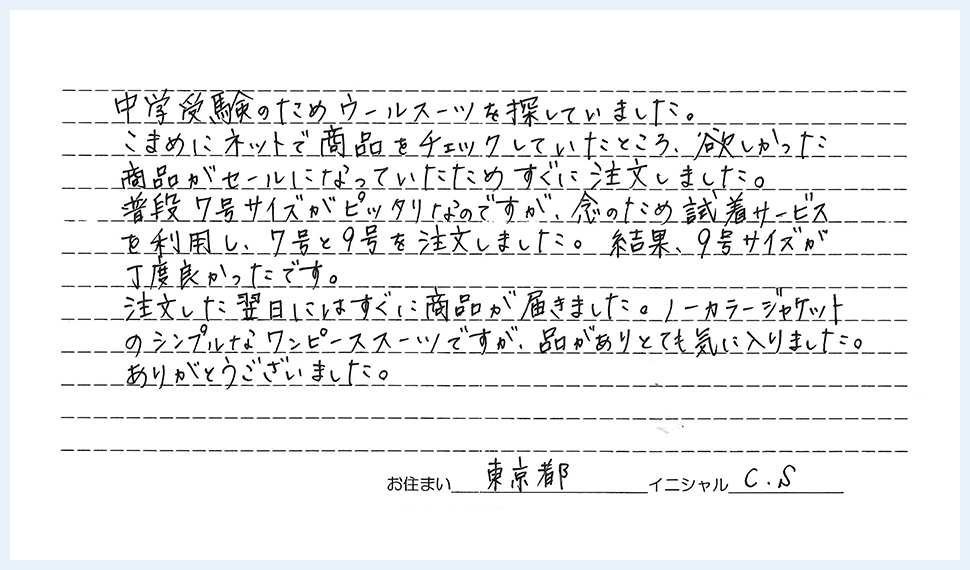 中学受験のためウールスーツを探していました。
こまめにネットで商品をチェックしていたところ、欲しかった
商品がセールになっていたためすぐに注文しました。
普段7号サイズがピッタリなのですが、念のため試着サービス
を利用し、7号と9号を注文しました。結果、9号サイズが
丁度良かったです。
注文した翌日にはすぐに商品が届きました。ノーカラージャケット
のシンプルなワンピーススーツですが、品がありとても気に入りました。
ありがとうございました。
お住まい 東京都 イニシャル C.S